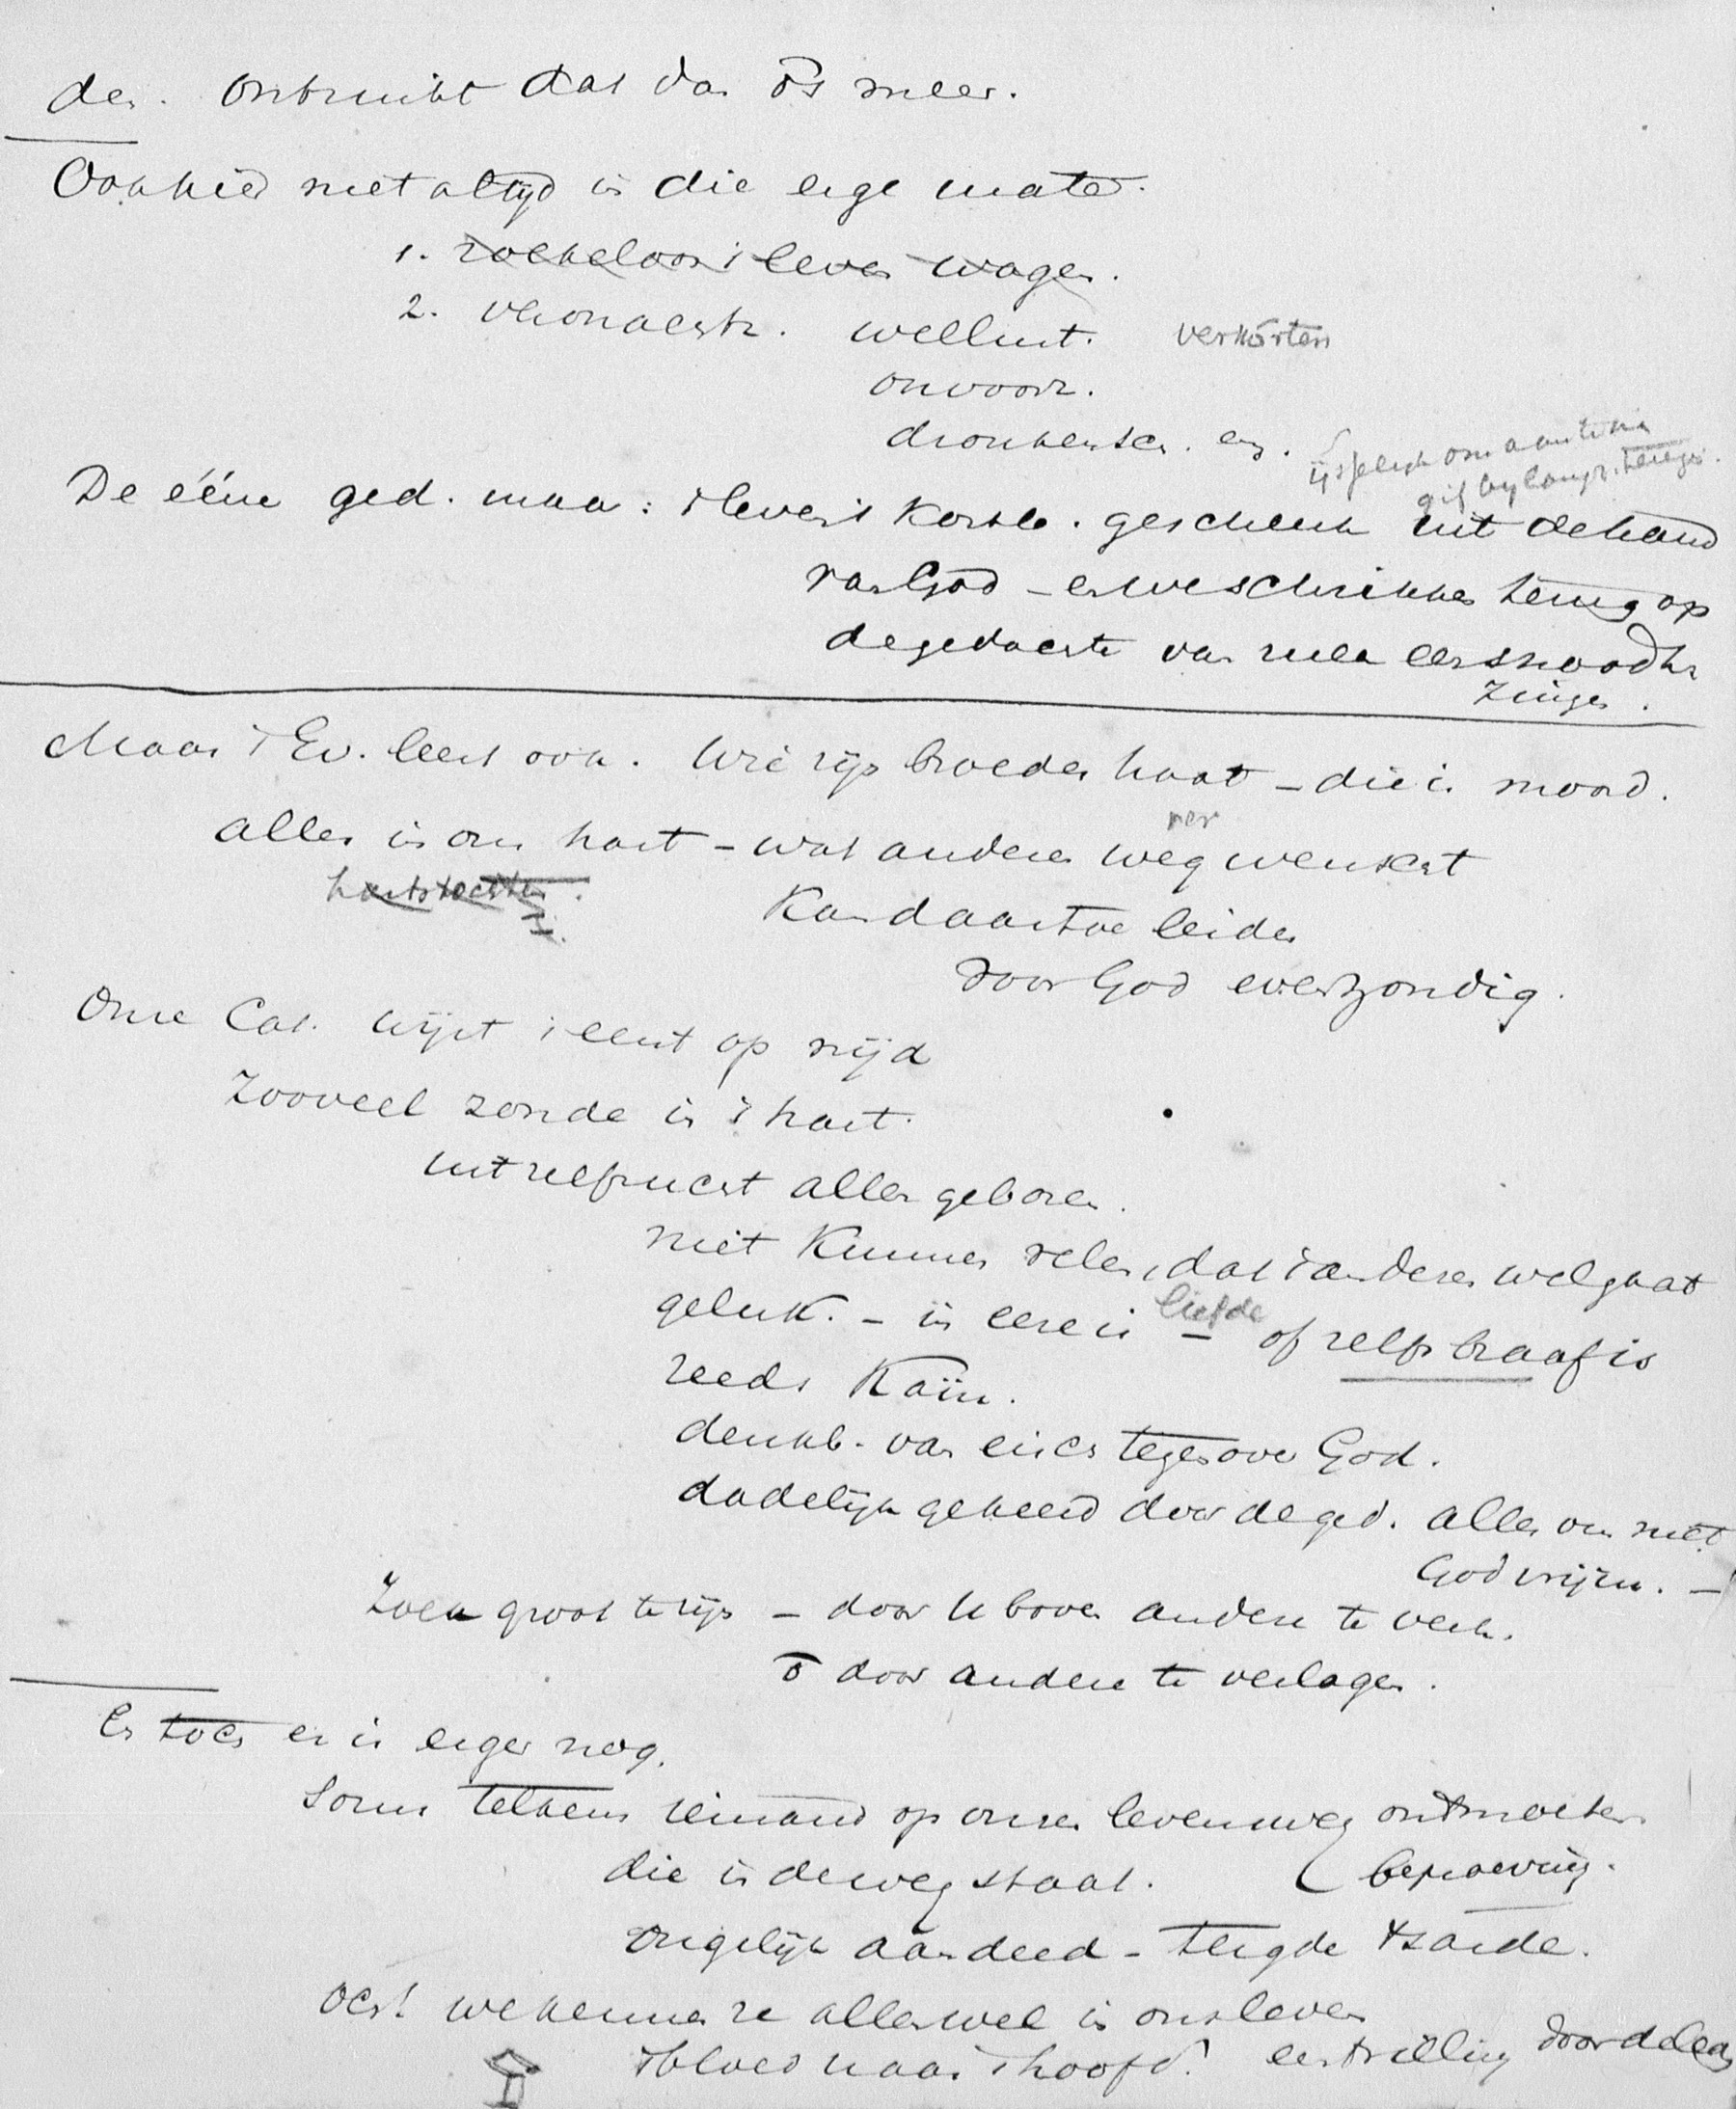 den. ontbreekt dat dan is meer.
Ook hier niet altijd in die erge mate.
1. roekeloos 't leven wagen.
2. verwaarl. wellust. verkorten
onvoorz.
dronkensch. enz.
De ééne ged. maar: 't leven is kostb. geschenk uit de hand
van God – en we schrikken terug op
de gedachte van
Maar 't Ev. leert ook. Wie zijn broeder haat – die is moord.
alles in ons hart – wat anderen ver weg wenscht
hartstochten.
Kan daartoe leiden
Voor God even zondig.
Onze Cat. wijst 't eerst op nijd
Zooveel zonde in 't hart.
uit zelfzucht alles geboren.
niet kunnen velen, dat 't anderen wel gaat
geluk. – in eere is – liefde of zelfs braaf is
reeds Kaïn.
denkb. van eischen tegenover God.
dadelijk gekeerd door de ged. alles om niet
God wijzen. –
Zoek groot te zijn – door U boven andere te verh.
o door andere te verlagen.
En toch er is erger nog.
Soms telkens iemand op onzen levensweg ontmoeten
die in de weg staat. (beproeving.
ongelijk aandeed – tergde
och! we kennen ze allen wel in ons leven
't bloed naar 't hoofd! een trilling door de leden